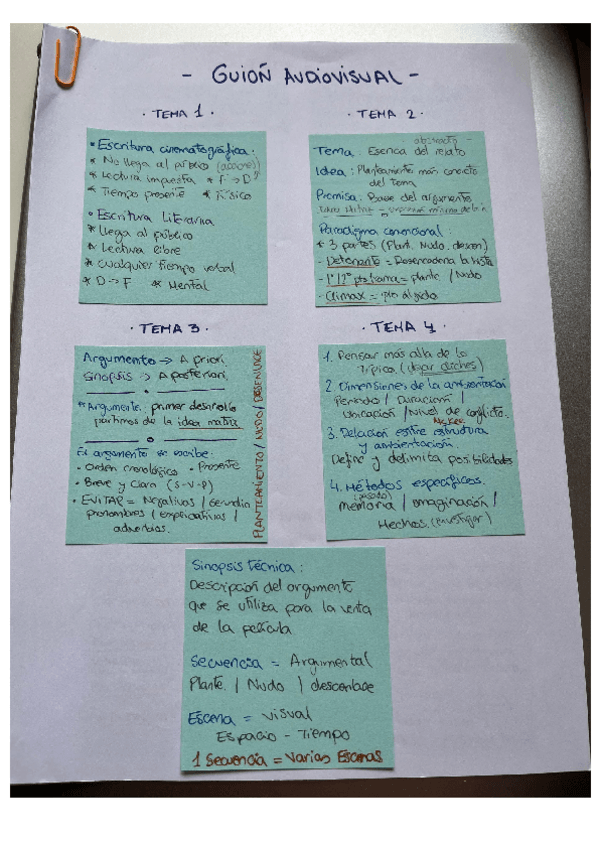 - GUIOÑ AUDIOVISUAL -
· TEMA 1 ·
• Escritura cinematográfica:
* No llega al público (acciones)
* Lectura impuesta * F → D
* Tiempo presente * Físico
• Escritura Literaria
* Llega al público
* Lectura libre
* Cualquier tiempo verbal
* D → F * Mental
· TEMA 2 ·
abstracto -
Tema: Esencia del relato
Idea: Planteamiento más concreto
del tema
Premisa: Base del argumento
Paradigma convencional:
* 3 partes (Plant. Nudo. desen)
- Detonante = Desencadena la hista
- 1º/2º pto trama = plante / Nudo
- Climax = pto álgido
· TEMA 3 ·
Argumento → A priori.
Sinopsis → A posteriori.
* Argumento: primer desarrollo
partimos de la idea matriz
El argumento se escribe:
• Orden cronológico • Presente
• Breve y Clara (S-V-P)
• EVITAR = Negativas / Gerundio
pronombres / explicativas /
adverbios.
PLANTEAMIENTO / NUDO / DESENLACE
· TEMA 4 ·
1. Pensar más alla de lo
Típica (dejar clichés)
2. Dimensiones de la ambientación
Periodo / Duración /
Ubicación / Nivel de conflicto.
McKee
3. Relación entre estructura
y ambientación.
Define y delimita posibilidades
4. Métodos específicos.
(pasado)
memoria / imaginación /
Hechos. (investigar)
Sinopsis técnica:
Descripción del argumento
que se utiliza para la venta
de la película
Secuencia = Argumental
Plante. / Nudo / desenlace
Escena = visual
Espacio - Tiempo
1 Secuencia = Varias Escenas